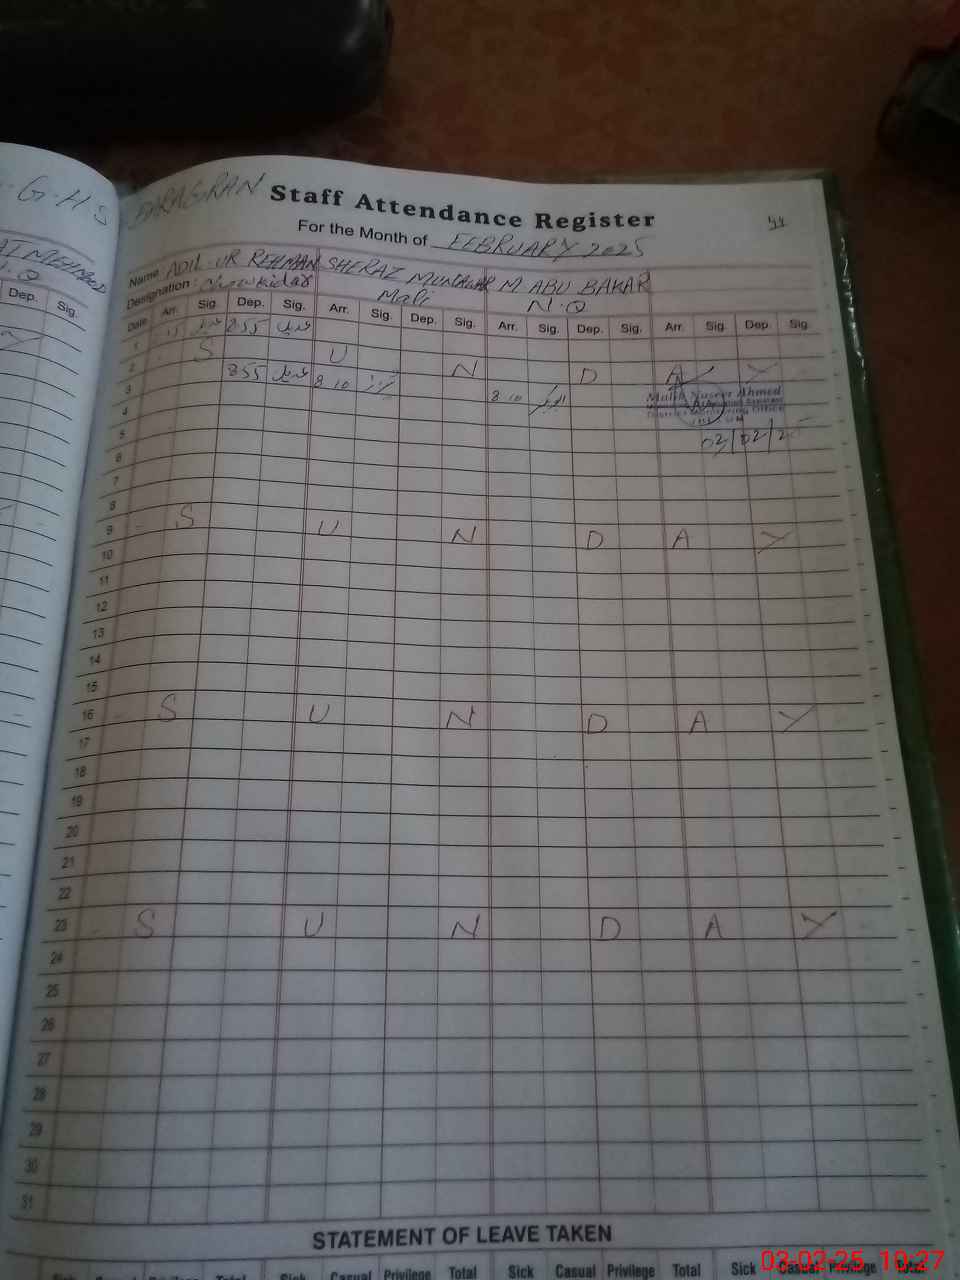 G.H.S
DARAGRAN Staff Attendance Register
For the Month of FEBRUARY 2025
Name ADIL-UR REHMAN SHERAZ MUNAWAR M ABU BAKAR
Designation : Chowkidar Mali N.Q
Dep. Sig.
Date Arr. Sig. Dep. Sig. Arr. Sig. Dep. Sig. Arr. Sig. Dep. Sig. Arr. Sig. Dep. Sig.
1 855 عدیل
2 S U N D A Y
3 855 عدیل 8 10 8 10
Malik Naseer Ahmed
District Monitoring Office
4
02/02/25
5
6
7
8
9 S U N D A Y
10
11
12
13
14
15
16 S U N D A Y
17
18
19
20
21
22
23 S U N D A Y
24
25
26
27
28
29
30
31
STATEMENT OF LEAVE TAKEN
Sick Casual Privilege Total Sick Casual Privilege Total Sick Casual Privilege Total Sick Casual Privilege Total
03-02-25 10:27